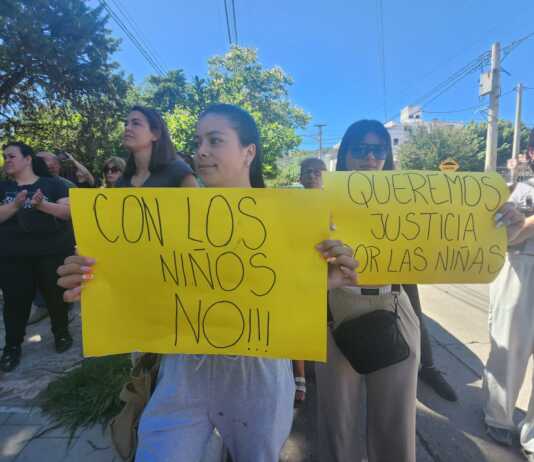 CON LOS
NIÑOS
NO!!!
QUEREMOS
JUSTICIA
POR LAS NIÑAS